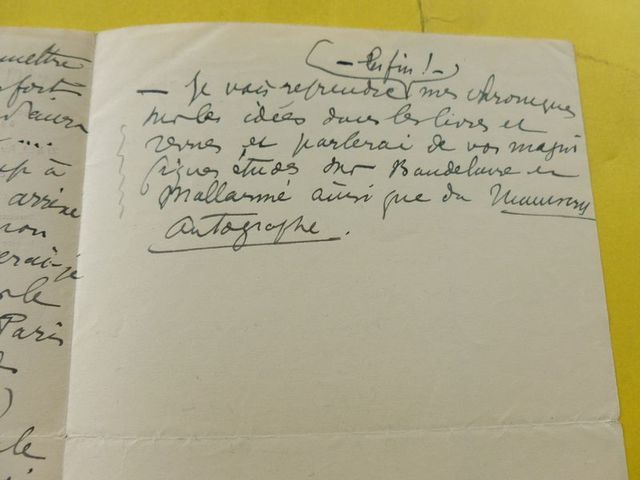 mettre
fort
....
à
arrive
non
erai-je
le
Paris
)
le
— Enfin! —
— Je vais reprendre mes chroniques
sur les idées dans les livres et
revues et parlerai de vos magni
fiques études sur Baudelaire et
Mallarmé ainsi que du Manuscrit
Autographe.